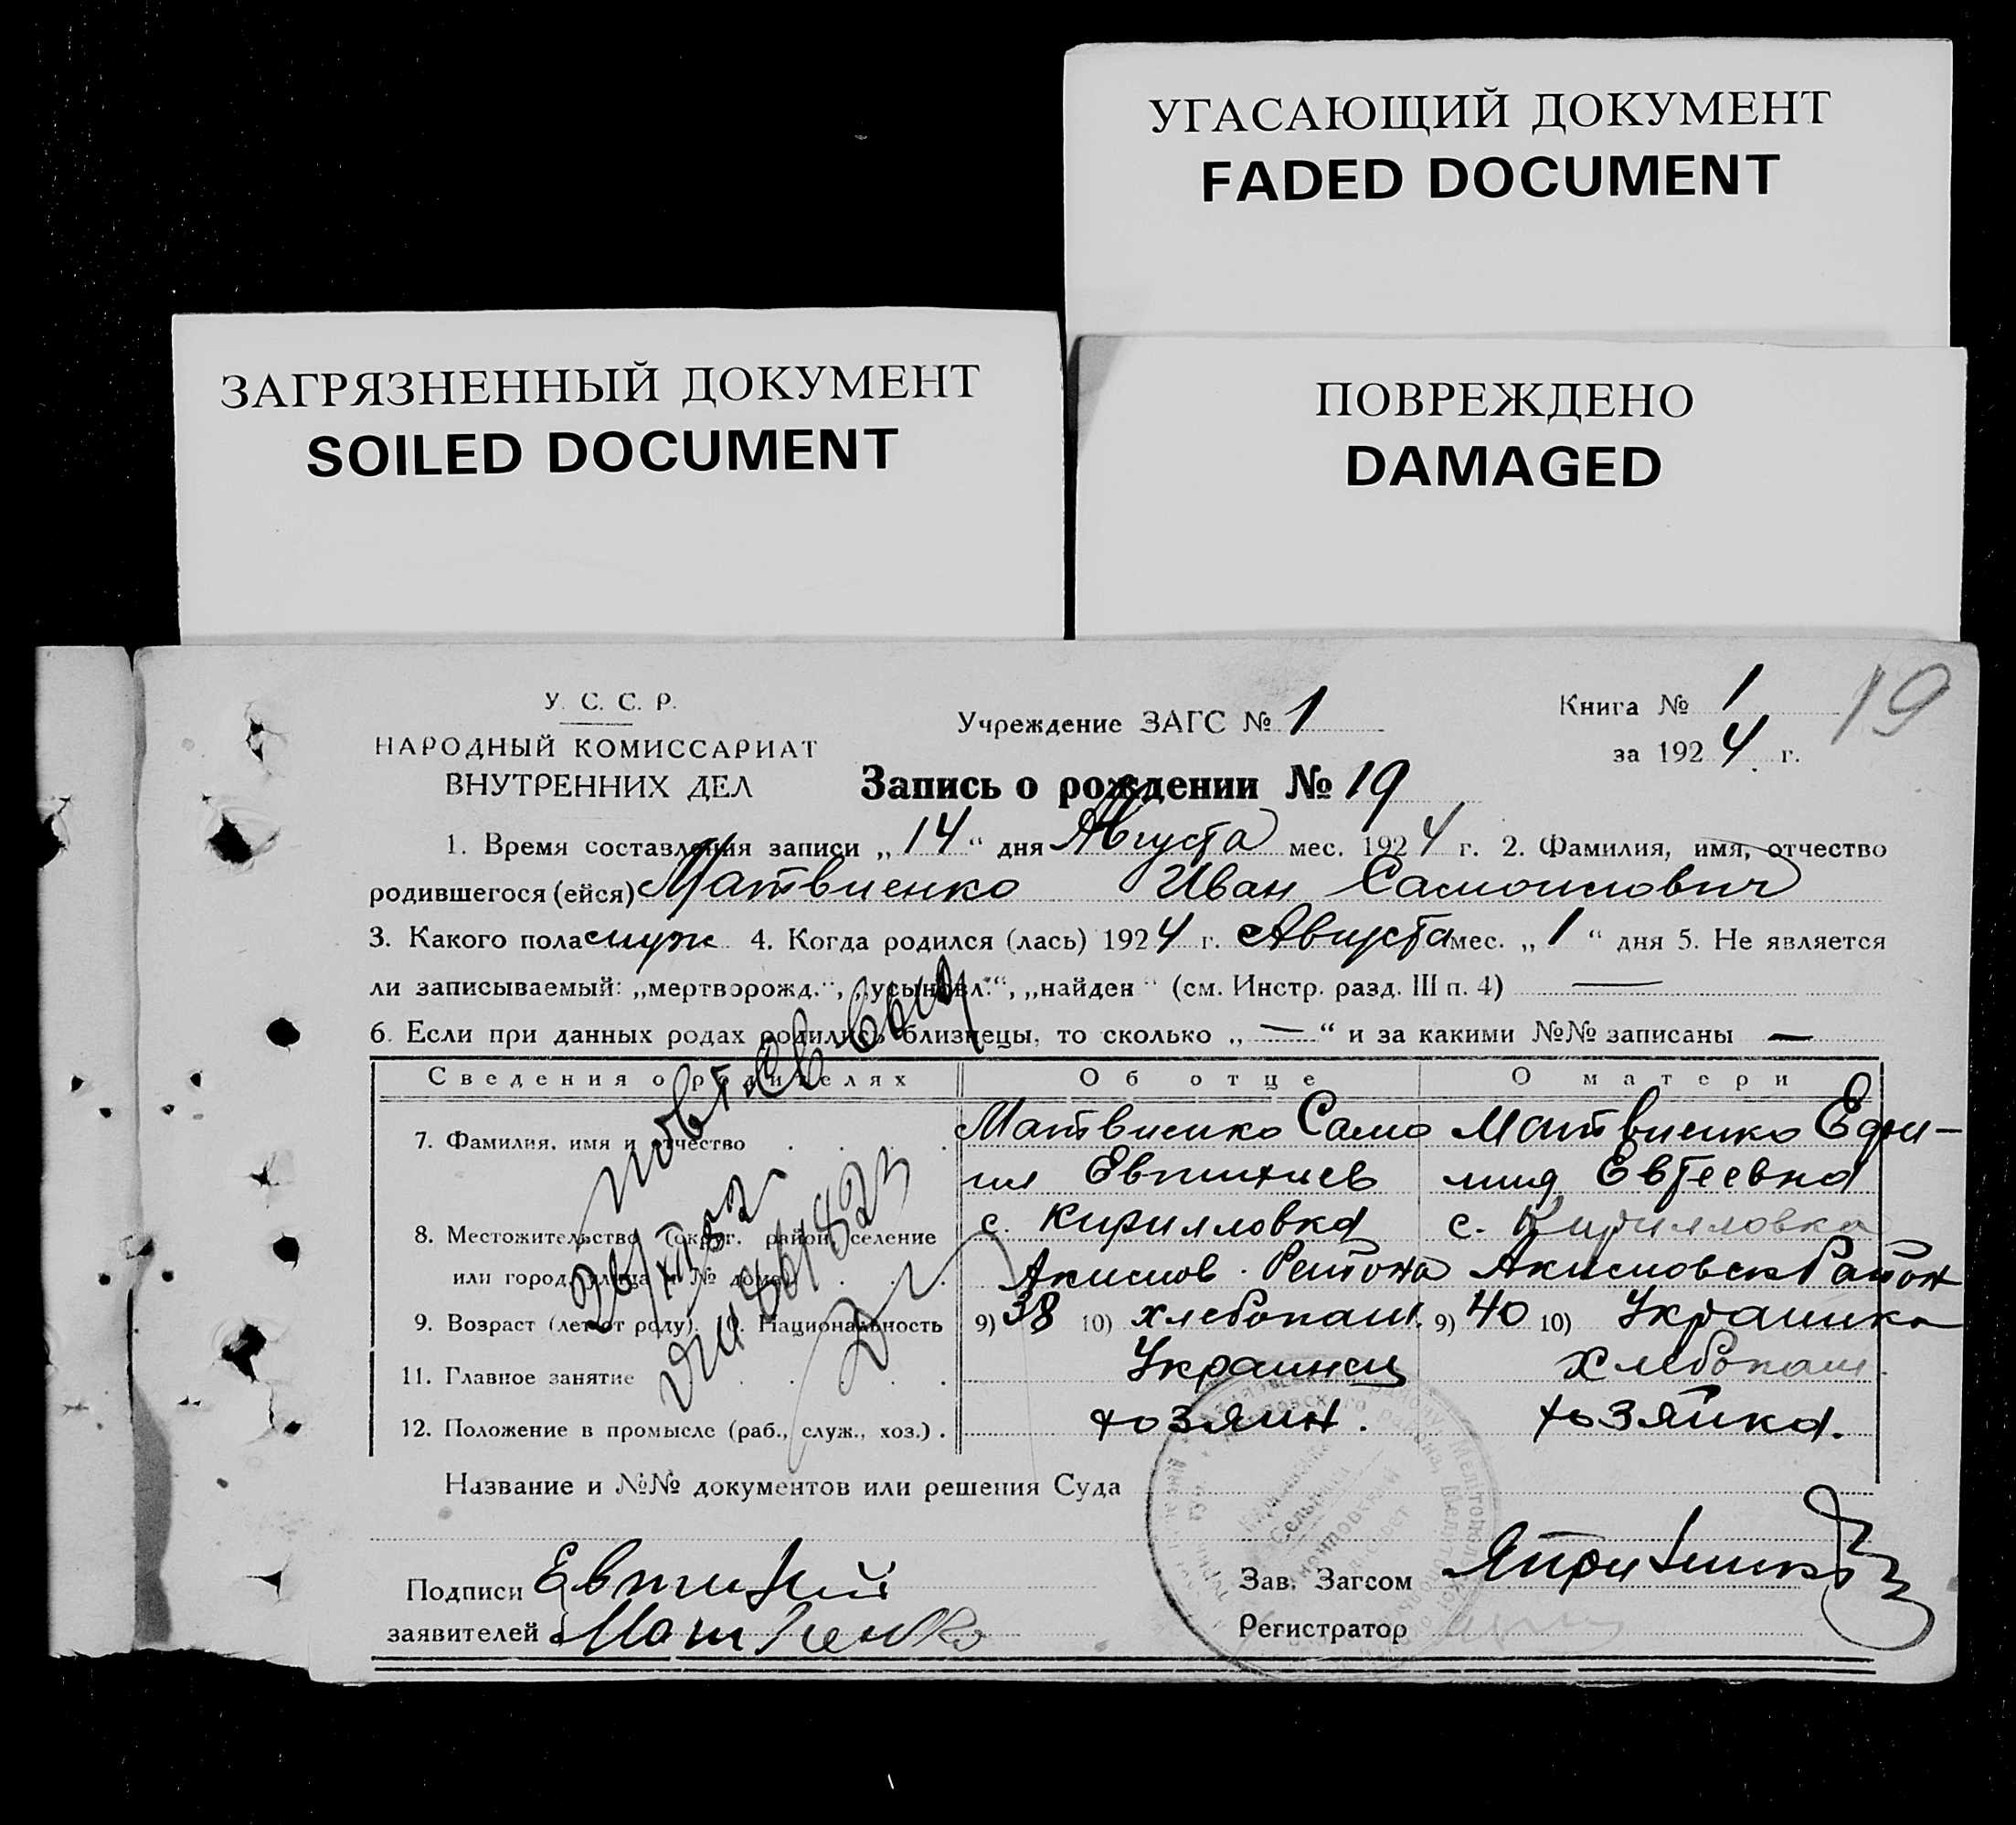 УГАСАЮЩИЙ ДОКУМЕНТ
FADED DOCUMENT
ЗАГРЯЗНЕННЫЙ ДОКУМЕНТ
SOILED DOCUMENT
ПОВРЕЖДЕНО
DAMAGED
У. С. С. Р.
НАРОДНЫЙ КОМИССАРИАТ
ВНУТРЕННИХ ДЕЛ
Учреждение ЗАГС № 1
Книга № 1 19
за 1924 г.
Запись о рождении № 19
1. Время составления записи „14“ дня Августа мес. 1924 г. 2. Фамилия, имя, отчество
родившегося (ейся) Матвиенко Иван Самоилович
3. Какого пола муж 4. Когда родился (лась) 1924 г. Августа мес. „1“ дня 5. Не является
ли записываемый: „мертворожд.“, „усыновл.“, „найден“ (см. Инстр. разд. III п. 4) —
6. Если при данных родах родились близнецы, то сколько „—“ и за какими №№ записаны —
Сведения о родителях Об отце О матери
7. Фамилия, имя и отчество . . . . Матвиенко Само Матвиенко Ефи-
ил Евтихиев мия Евтеевна
8. Местожительство (округ, район, селение с. Кирилловка с. Кирилловка
или город, улица и № дома) . . . Акимов. Района Акимовск Район
9. Возраст (лет от роду). 10. Национальность 9) 38 10) хлебопаш. 9) 40 10) Украинка
11. Главное занятие . . . . Украинец Хлебопаш.
12. Положение в промысле (раб., служ., хоз.) . хозяин. хозяйка.
повт. св. выд
Название и №№ документов или решения Суда
Подписи Евтихий
заявителей Матвиенко
Зав. Загсом
Регистратор